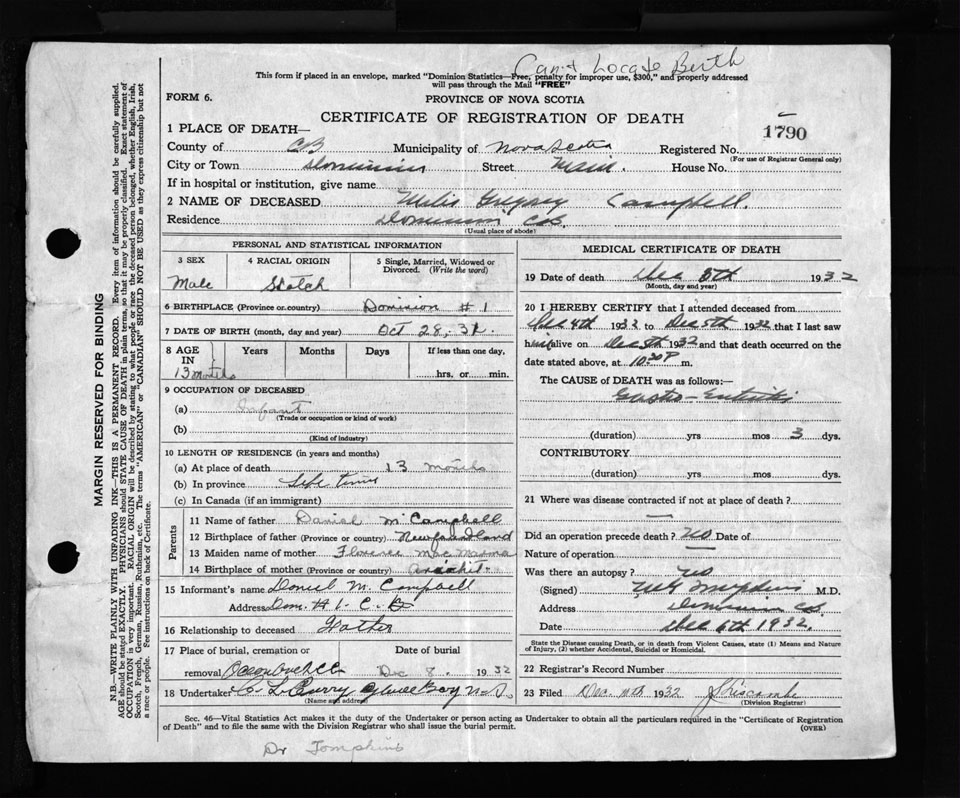 Can't Locate Birth
This form if placed in an envelope, marked "Dominion Statistics—Free, penalty for improper use, $300," and properly addressed
will pass through the Mail "FREE"
FORM 6.
PROVINCE OF NOVA SCOTIA
CERTIFICATE OF REGISTRATION OF DEATH
1790
1 PLACE OF DEATH—
County of CB Municipality of Nova Scotia Registered No.
(For use of Registrar General only)
City or Town Dominion Street Main. House No.
If in hospital or institution, give name
2 NAME OF DECEASED Gregory Campbell.
Residence Dominion CB.
(Usual place of abode)
MARGIN RESERVED FOR BINDING
N.B.—WRITE PLAINLY WITH UNFADING INK—THIS IS A PERMANENT RECORD. Every item of information should be carefully supplied.
AGE should be stated EXACTLY. PHYSICIANS should STATE CAUSE OF DEATH in plain terms, so that it may be properly classified. Exact statement of
OCCUPATION is very important. RACIAL ORIGIN will be described by stating to what people or race the deceased person belonged, whether English, Irish,
Scotch, French, German, Russian, Ruthenian, etc. The terms "AMERICAN" or "CANADIAN" SHOULD NOT BE USED as they express citizenship but not
a race or people. See instructions on back of Certificate.
PERSONAL AND STATISTICAL INFORMATION
3 SEX
Male
4 RACIAL ORIGIN
Scotch
5 Single, Married, Widowed or
Divorced. (Write the word)
6 BIRTHPLACE (Province or country) Dominion # 1
7 DATE OF BIRTH (month, day and year) Oct 28, 31.
8 AGE Years Months Days If less than one day,
IN
13 months hrs. or min.
9 OCCUPATION OF DECEASED
(a) Infant
(Trade or occupation or kind of work)
(b)
(Kind of industry)
10 LENGTH OF RESIDENCE (in years and months)
(a) At place of death 13 months
(b) In province Life time
(c) In Canada (if an immigrant)
Parents
11 Name of father Daniel M Campbell
12 Birthplace of father (Province or country) Newfoundland
13 Maiden name of mother Florence Mac
14 Birthplace of mother (Province or country) Arichat.
15 Informant's name Daniel M. Campbell
Address Dom. # 1. C. B
16 Relationship to deceased Father
17 Place of burial, cremation or Date of burial
removal Dec 8. 1932
18 Undertaker Curry Glace Bay N.S.
(Name and address)
MEDICAL CERTIFICATE OF DEATH
19 Date of death Dec 5th 1932
(Month, day and year)
20 I HEREBY CERTIFY that I attended deceased from
Dec 4th 1932 to Dec 5th 1932 that I last saw
him alive on Dec 5th 1932 and that death occurred on the
date stated above, at 10:30 P m.
The CAUSE of DEATH was as follows:—
Gastro-Enteritis
(duration) yrs mos 3 dys.
CONTRIBUTORY
(duration) yrs mos dys.
21 Where was disease contracted if not at place of death?
Did an operation precede death? No Date of
Nature of operation
Was there an autopsy? No
(Signed) Tompkins M.D.
Address Dominion CB.
Date Dec 6th 1932.
State the Disease causing Death, or in death from Violent Causes, state (1) Means and Nature
of Injury, and (2) whether Accidental, Suicidal or Homicidal.
22 Registrar's Record Number
23 Filed Dec. 1932
(Division Registrar)
Sec. 46—Vital Statistics Act makes it the duty of the Undertaker or person acting as Undertaker to obtain all the particulars required in the "Certificate of Registration
of Death" and to file the same with the Division Registrar who shall issue the burial permit.
(OVER)
Dr Tompkins